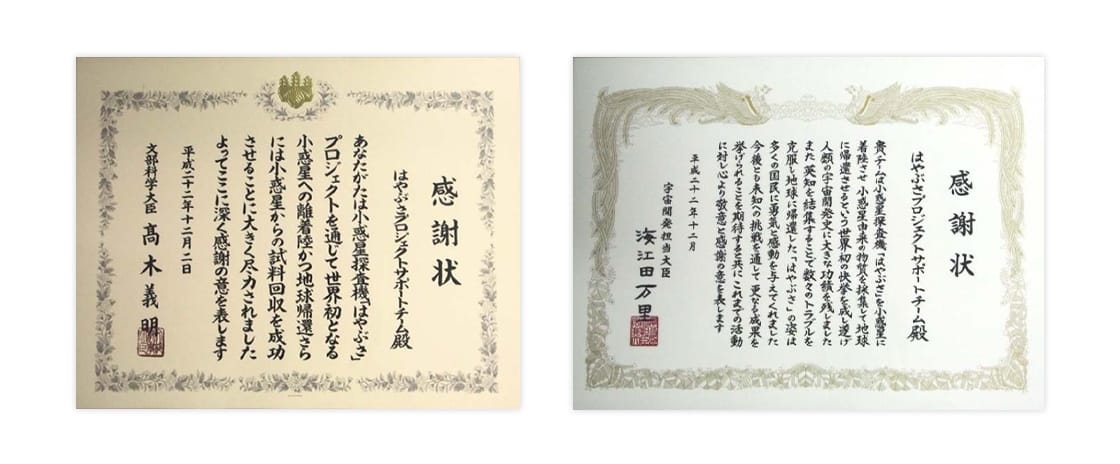 感謝状
はやぶさプロジェクトサポートチーム殿
あなたがたは小惑星探査機「はやぶさ」
プロジェクトを通して世界初となる
小惑星への離着陸かつ地球帰還さら
には小惑星からの試料回収を成功
させることに大きく尽力されました
よってここに深く感謝の意を表します
平成二十二年十二月二日
文部科学大臣 髙木義明
感謝状
はやぶさプロジェクトサポートチーム殿
貴チームは小惑星探査機「はやぶさ」を小惑星に
着陸させ小惑星由来の物質を採集して地球
に帰還させるという世界初の快挙を成し遂げ
人類の宇宙開発史に大きな功績を残しました
また英知を結集することで数々のトラブルを
克服し地球に帰還した「はやぶさ」の姿は
多くの国民に勇気と感動を与えてくれました
今後とも未知への挑戦を通して更なる成果を
挙げられることを期待すると共にこれまでの活動
に対し心より敬意と感謝の意を表します
平成二十二年十二月
宇宙開発担当大臣
海江田万里